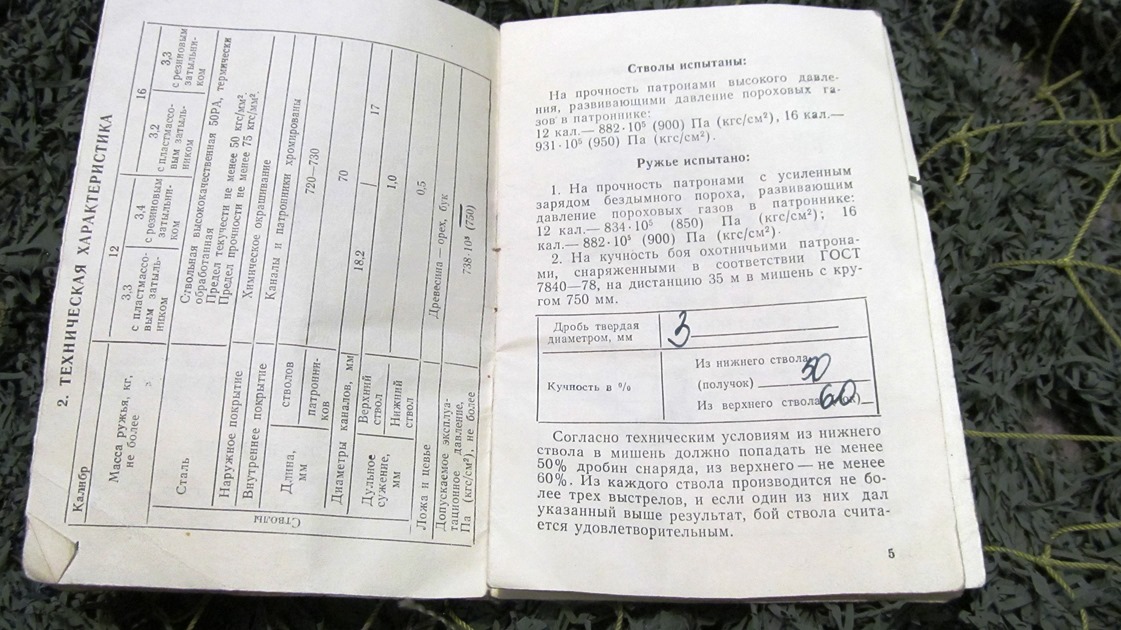 2. ТЕХНИЧЕСКАЯ ХАРАКТЕРИСТИКА
Калибр
12
16
Масса ружья, кг,
не более
3,3
с пластмассо-
вым затыль-
ником
3,4
с резиновым
затыльни-
ком
3,2
с пластмассо-
вым затыль-
ником
3,3
с резиновым
затыльни-
ком
Стволы
Сталь
Ствольная высококачественная 50РА, термически
обработанная
Предел текучести не менее 50 кгс/мм²
Предел прочности не менее 75 кгс/мм².
Наружное покрытие
Химическое окрашивание
Внутреннее покрытие
Каналы и патронники хромированы
Длина,
мм
стволов
720—730
патронни-
ков
70
Диаметры каналов, мм
18.2
17
Дульное
сужение,
мм
Верхний
ствол
1,0
Нижний
ствол
0,5
Ложа и цевье
Древесина — орех, бук
Допускаемое эксплуа-
тационное давление,
Па (кгс/см²), не более
738·10⁵ (750)
Стволы испытаны:
На прочность патронами высокого давле-
ния, развивающими давление пороховых га-
зов в патроннике:
12 кал.— 882·10⁵ (900) Па (кгс/см²), 16 кал.—
931·10⁵ (950) Па (кгс/см²).
Ружье испытано:
1. На прочность патронами с усиленным
зарядом бездымного пороха, развивающим
давление пороховых газов в патроннике:
12 кал.— 834·10⁵ (850) Па (кгс/см²); 16
кал.— 882·10⁵ (900) Па (кгс/см²).
2. На кучность боя охотничьими патрона-
ми, снаряженными в соответствии ГОСТ
7840—78, на дистанцию 35 м в мишень с кру-
гом 750 мм.
Дробь твердая
диаметром, мм
3
Кучность в %
Из нижнего ствола
(получок) 50
Из верхнего ствола 60
Согласно техническим условиям из нижнего
ствола в мишень должно попадать не менее
50% дробин снаряда, из верхнего — не менее
60%. Из каждого ствола производится не бо-
лее трех выстрелов, и если один из них дал
указанный выше результат, бой ствола счита-
ется удовлетворительным.
5